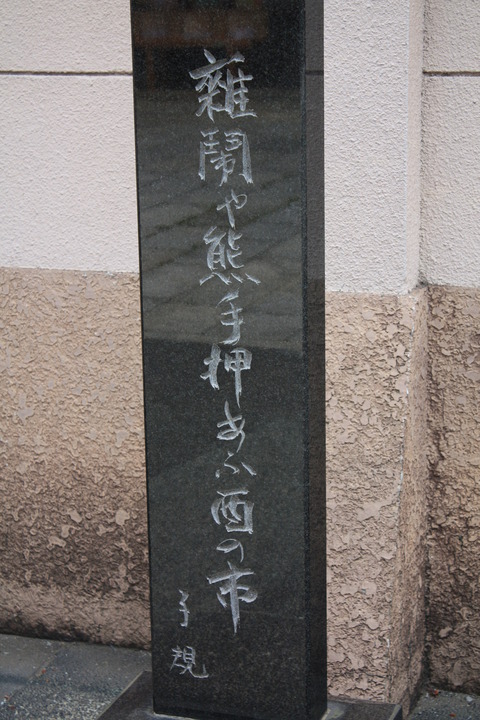 雑鬧や熊手押あふ酉の市
子規